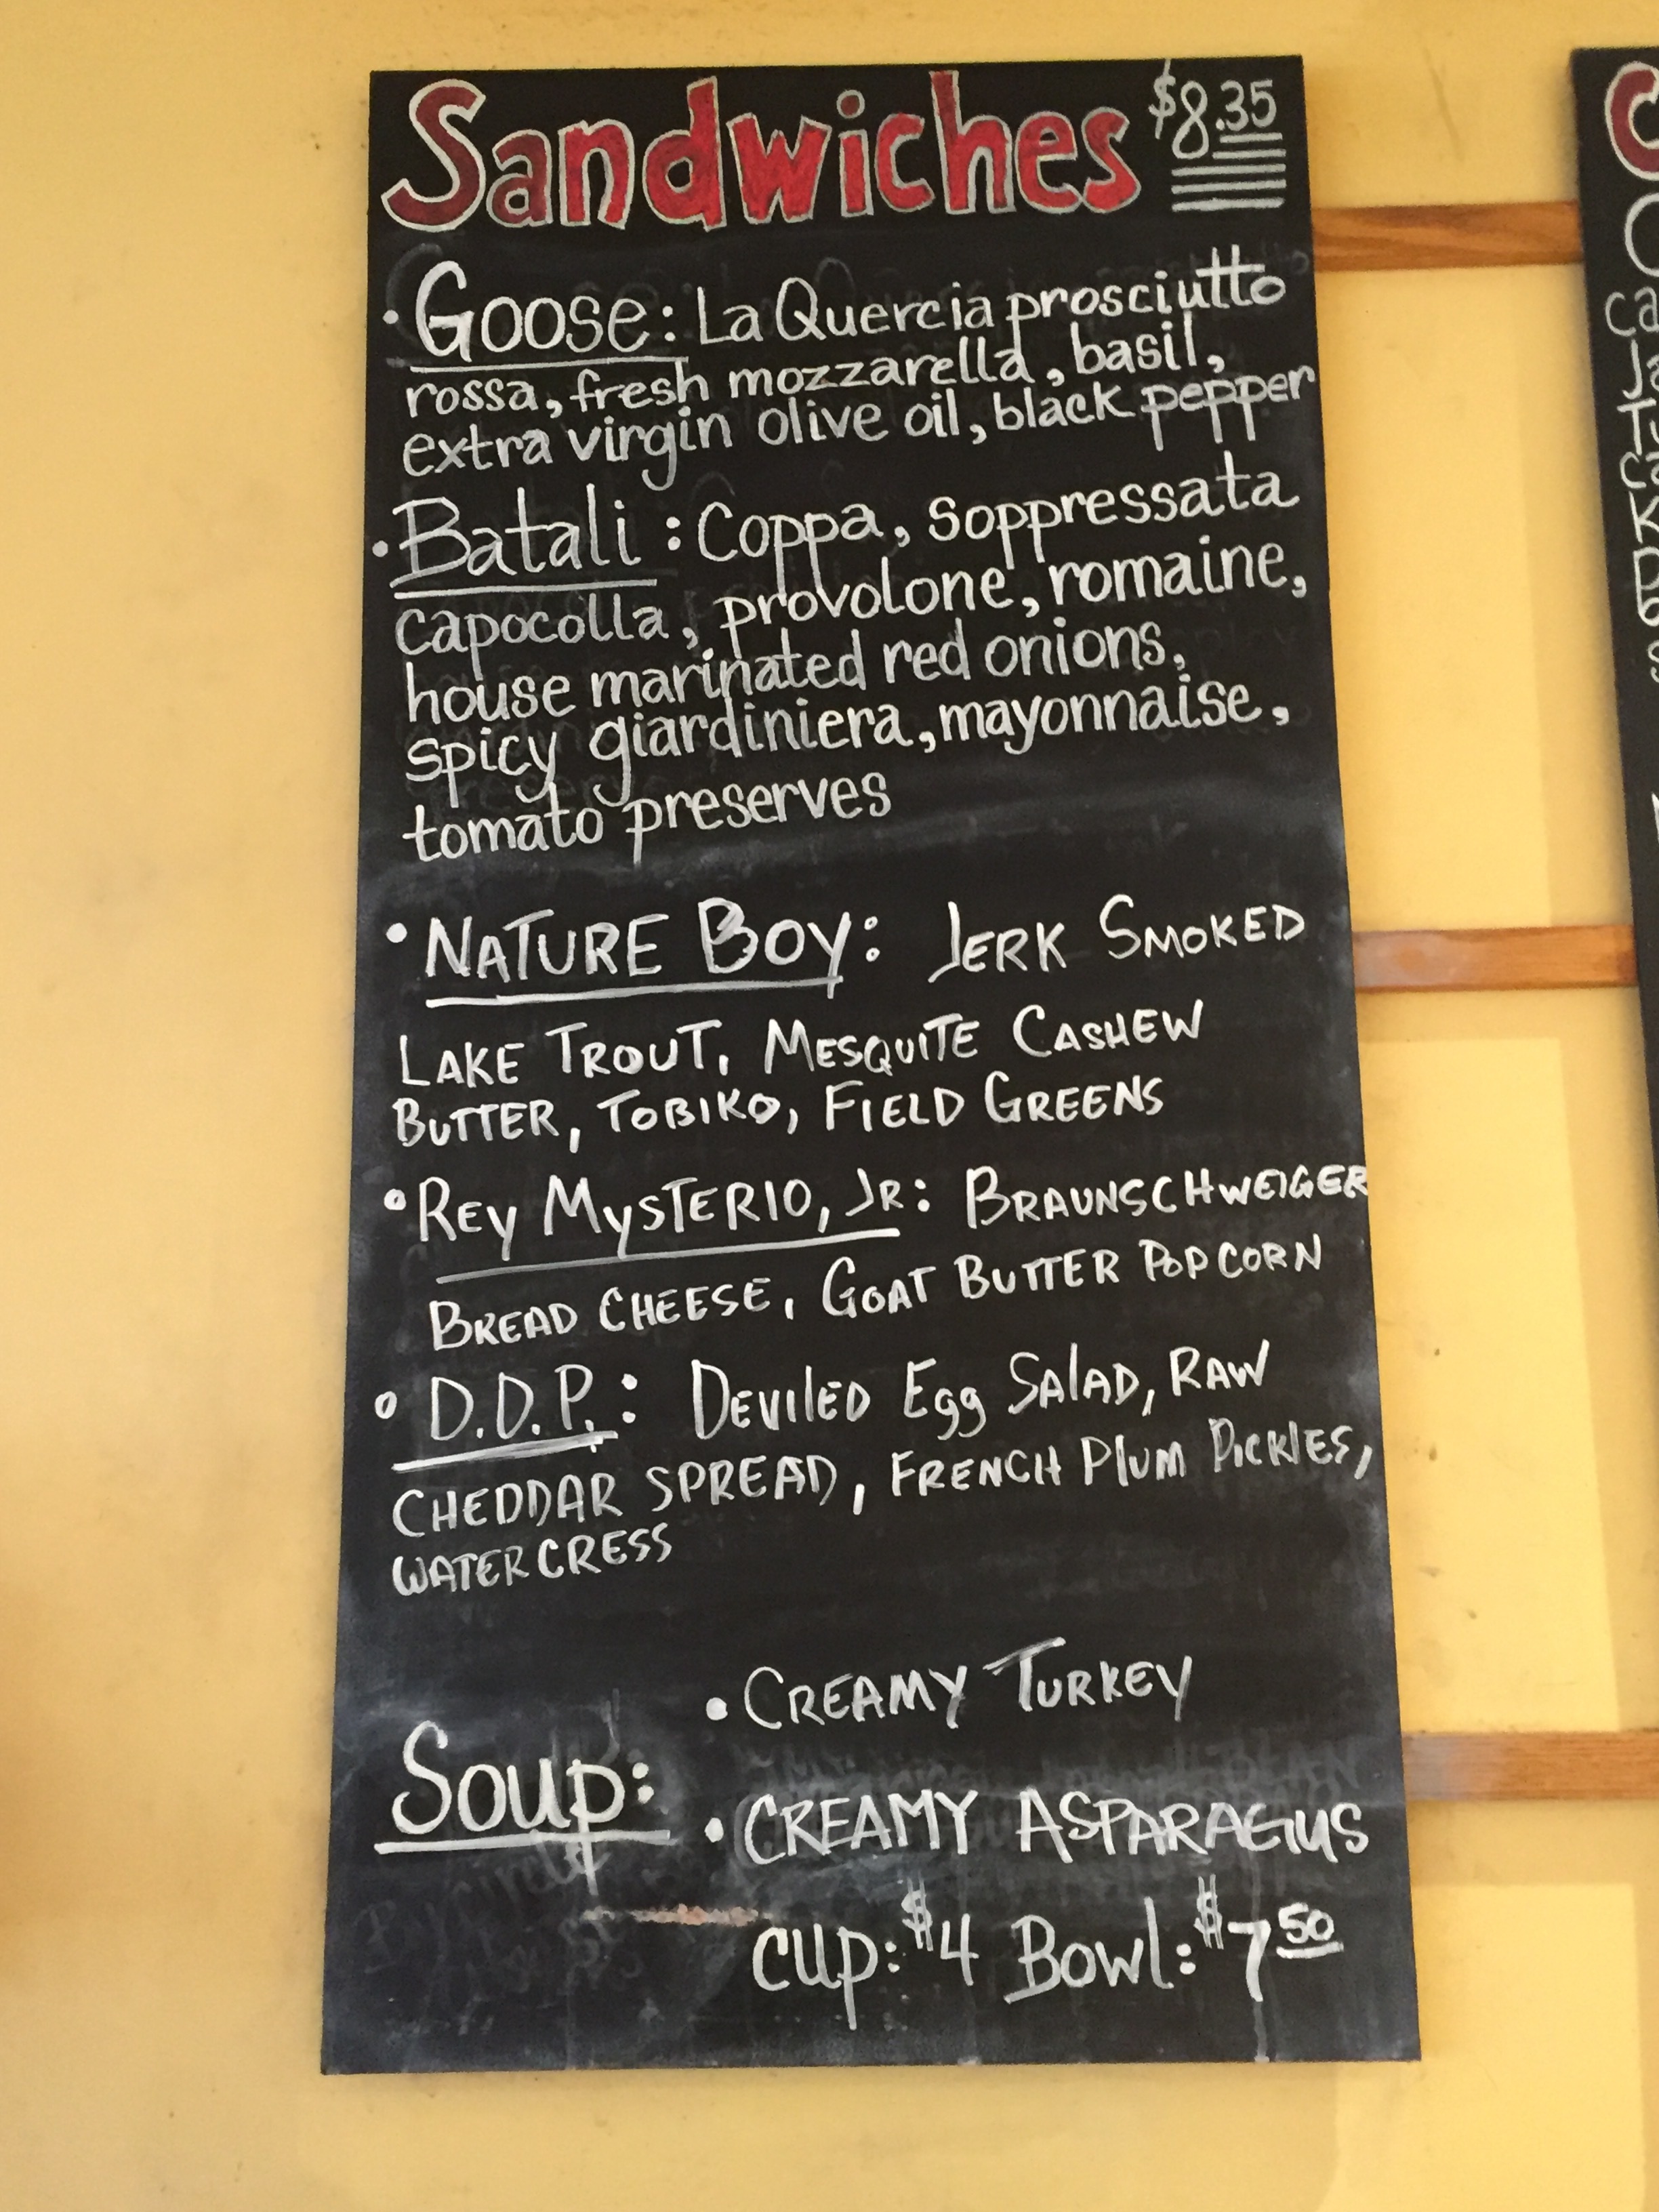 Sandwiches $8.35
• Goose: La Quercia prosciutto
rossa, fresh mozzarella, basil,
extra virgin olive oil, black pepper
• Batali: Coppa, soppressata
capocolla, provolone, romaine,
house marinated red onions,
spicy giardiniera, mayonnaise,
tomato preserves
• NATURE BOY: JERK SMOKED
LAKE TROUT, MESQUITE CASHEW
BUTTER, TOBIKO, FIELD GREENS
• REY MYSTERIO, JR: BRAUNSCHWEIGER
BREAD CHEESE, GOAT BUTTER POPCORN
• D.D.P.: DEVILED EGG SALAD, RAW
CHEDDAR SPREAD, FRENCH PLUM PICKLES,
WATERCRESS
• CREAMY TURKEY
Soup:
• CREAMY ASPARAGUS
cup: $4 Bowl: $7 50